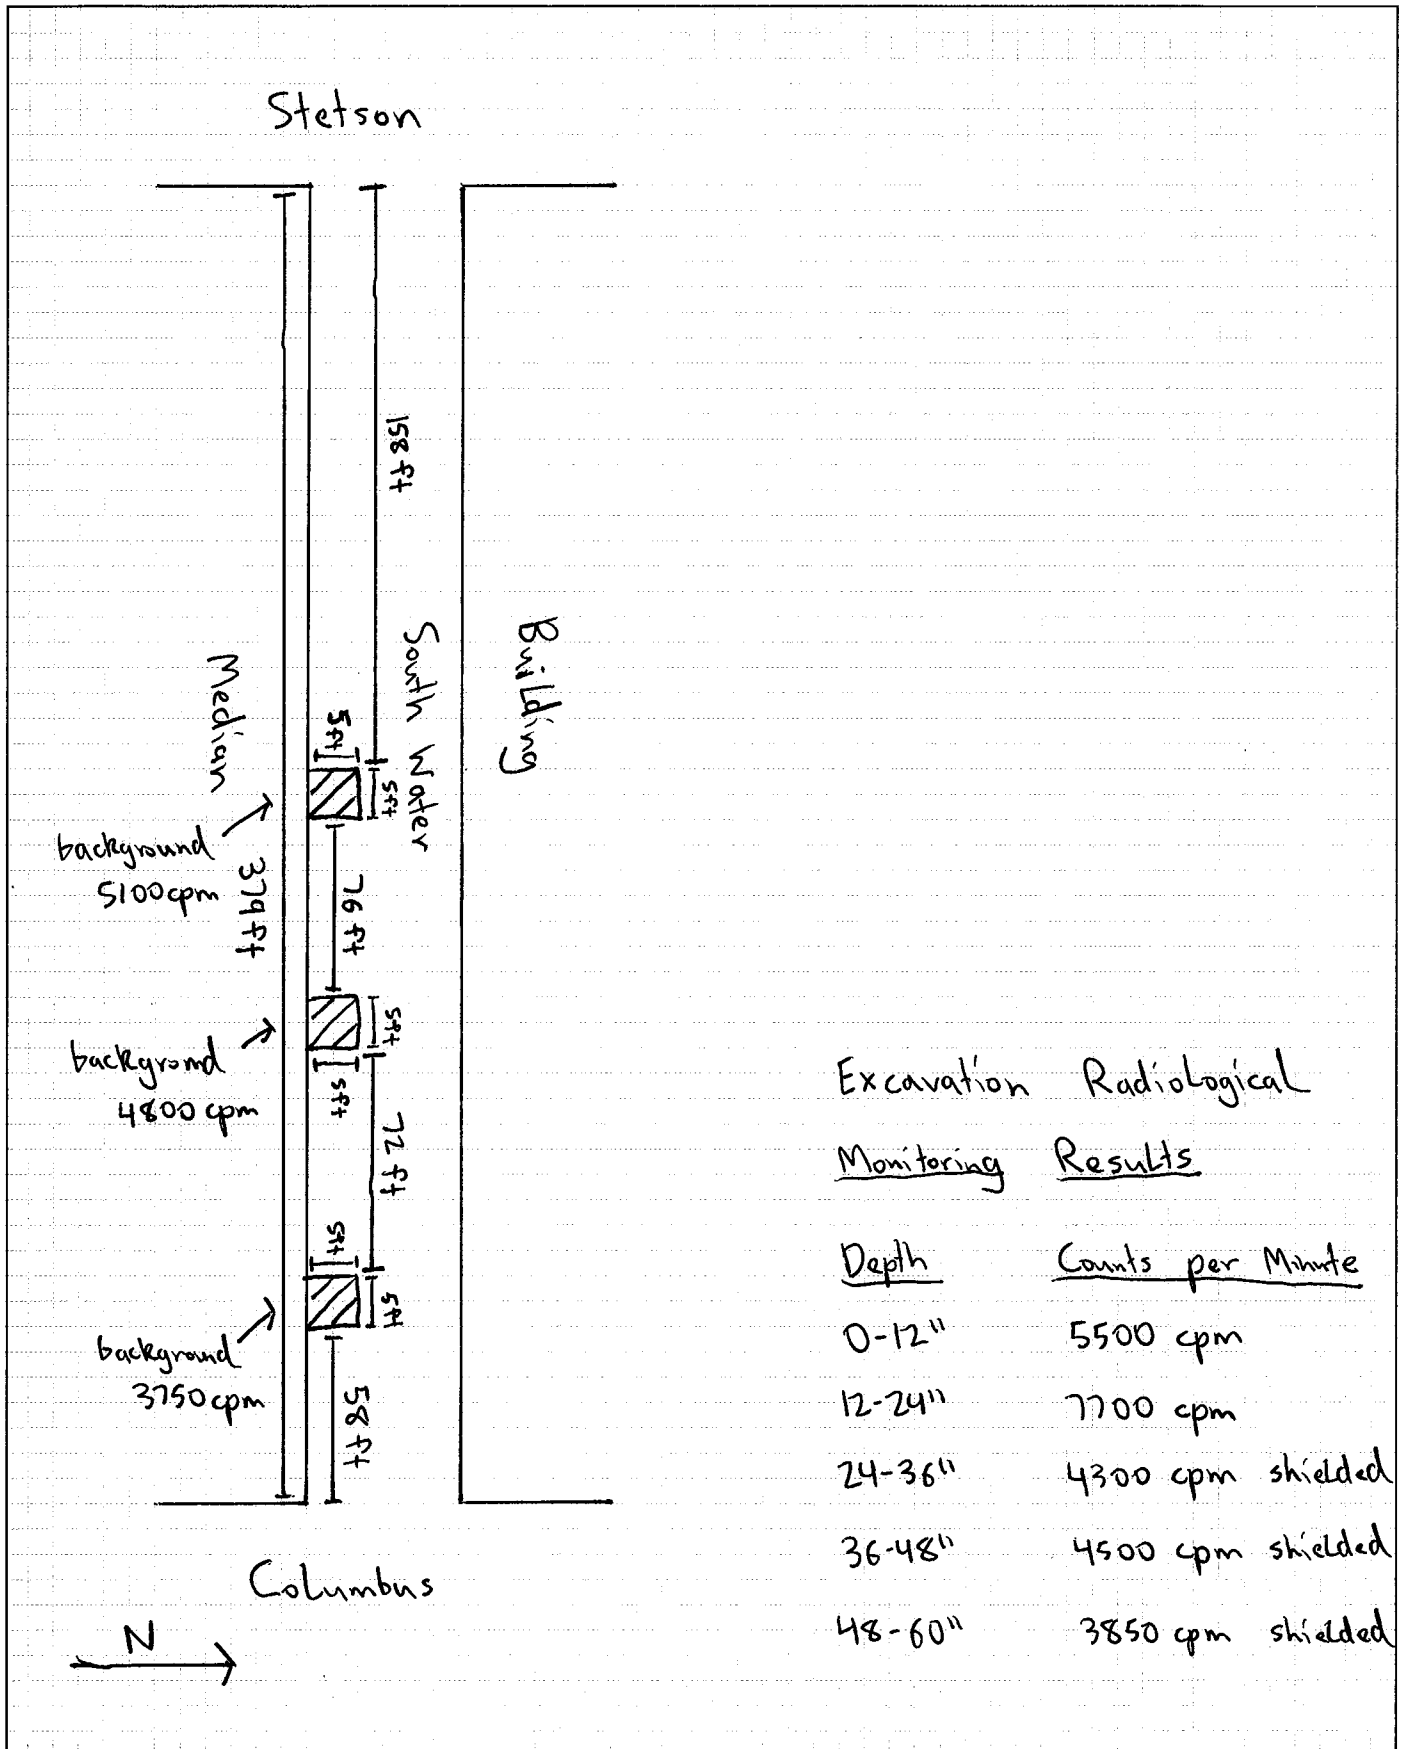 Stetson
158 ft
South Water
Building
Median
379 ft
5ft
5ft
background
5100 cpm
76 ft
5ft
5ft
background
4800 cpm
72 ft
5ft
5ft
background
3750 cpm
58 ft
Columbus
N
Excavation Radiological
Monitoring Results
Depth Counts per Minute
0-12" 5500 cpm
12-24" 7700 cpm
24-36" 4300 cpm shielded
36-48" 4500 cpm shielded
48-60" 3850 cpm shielded